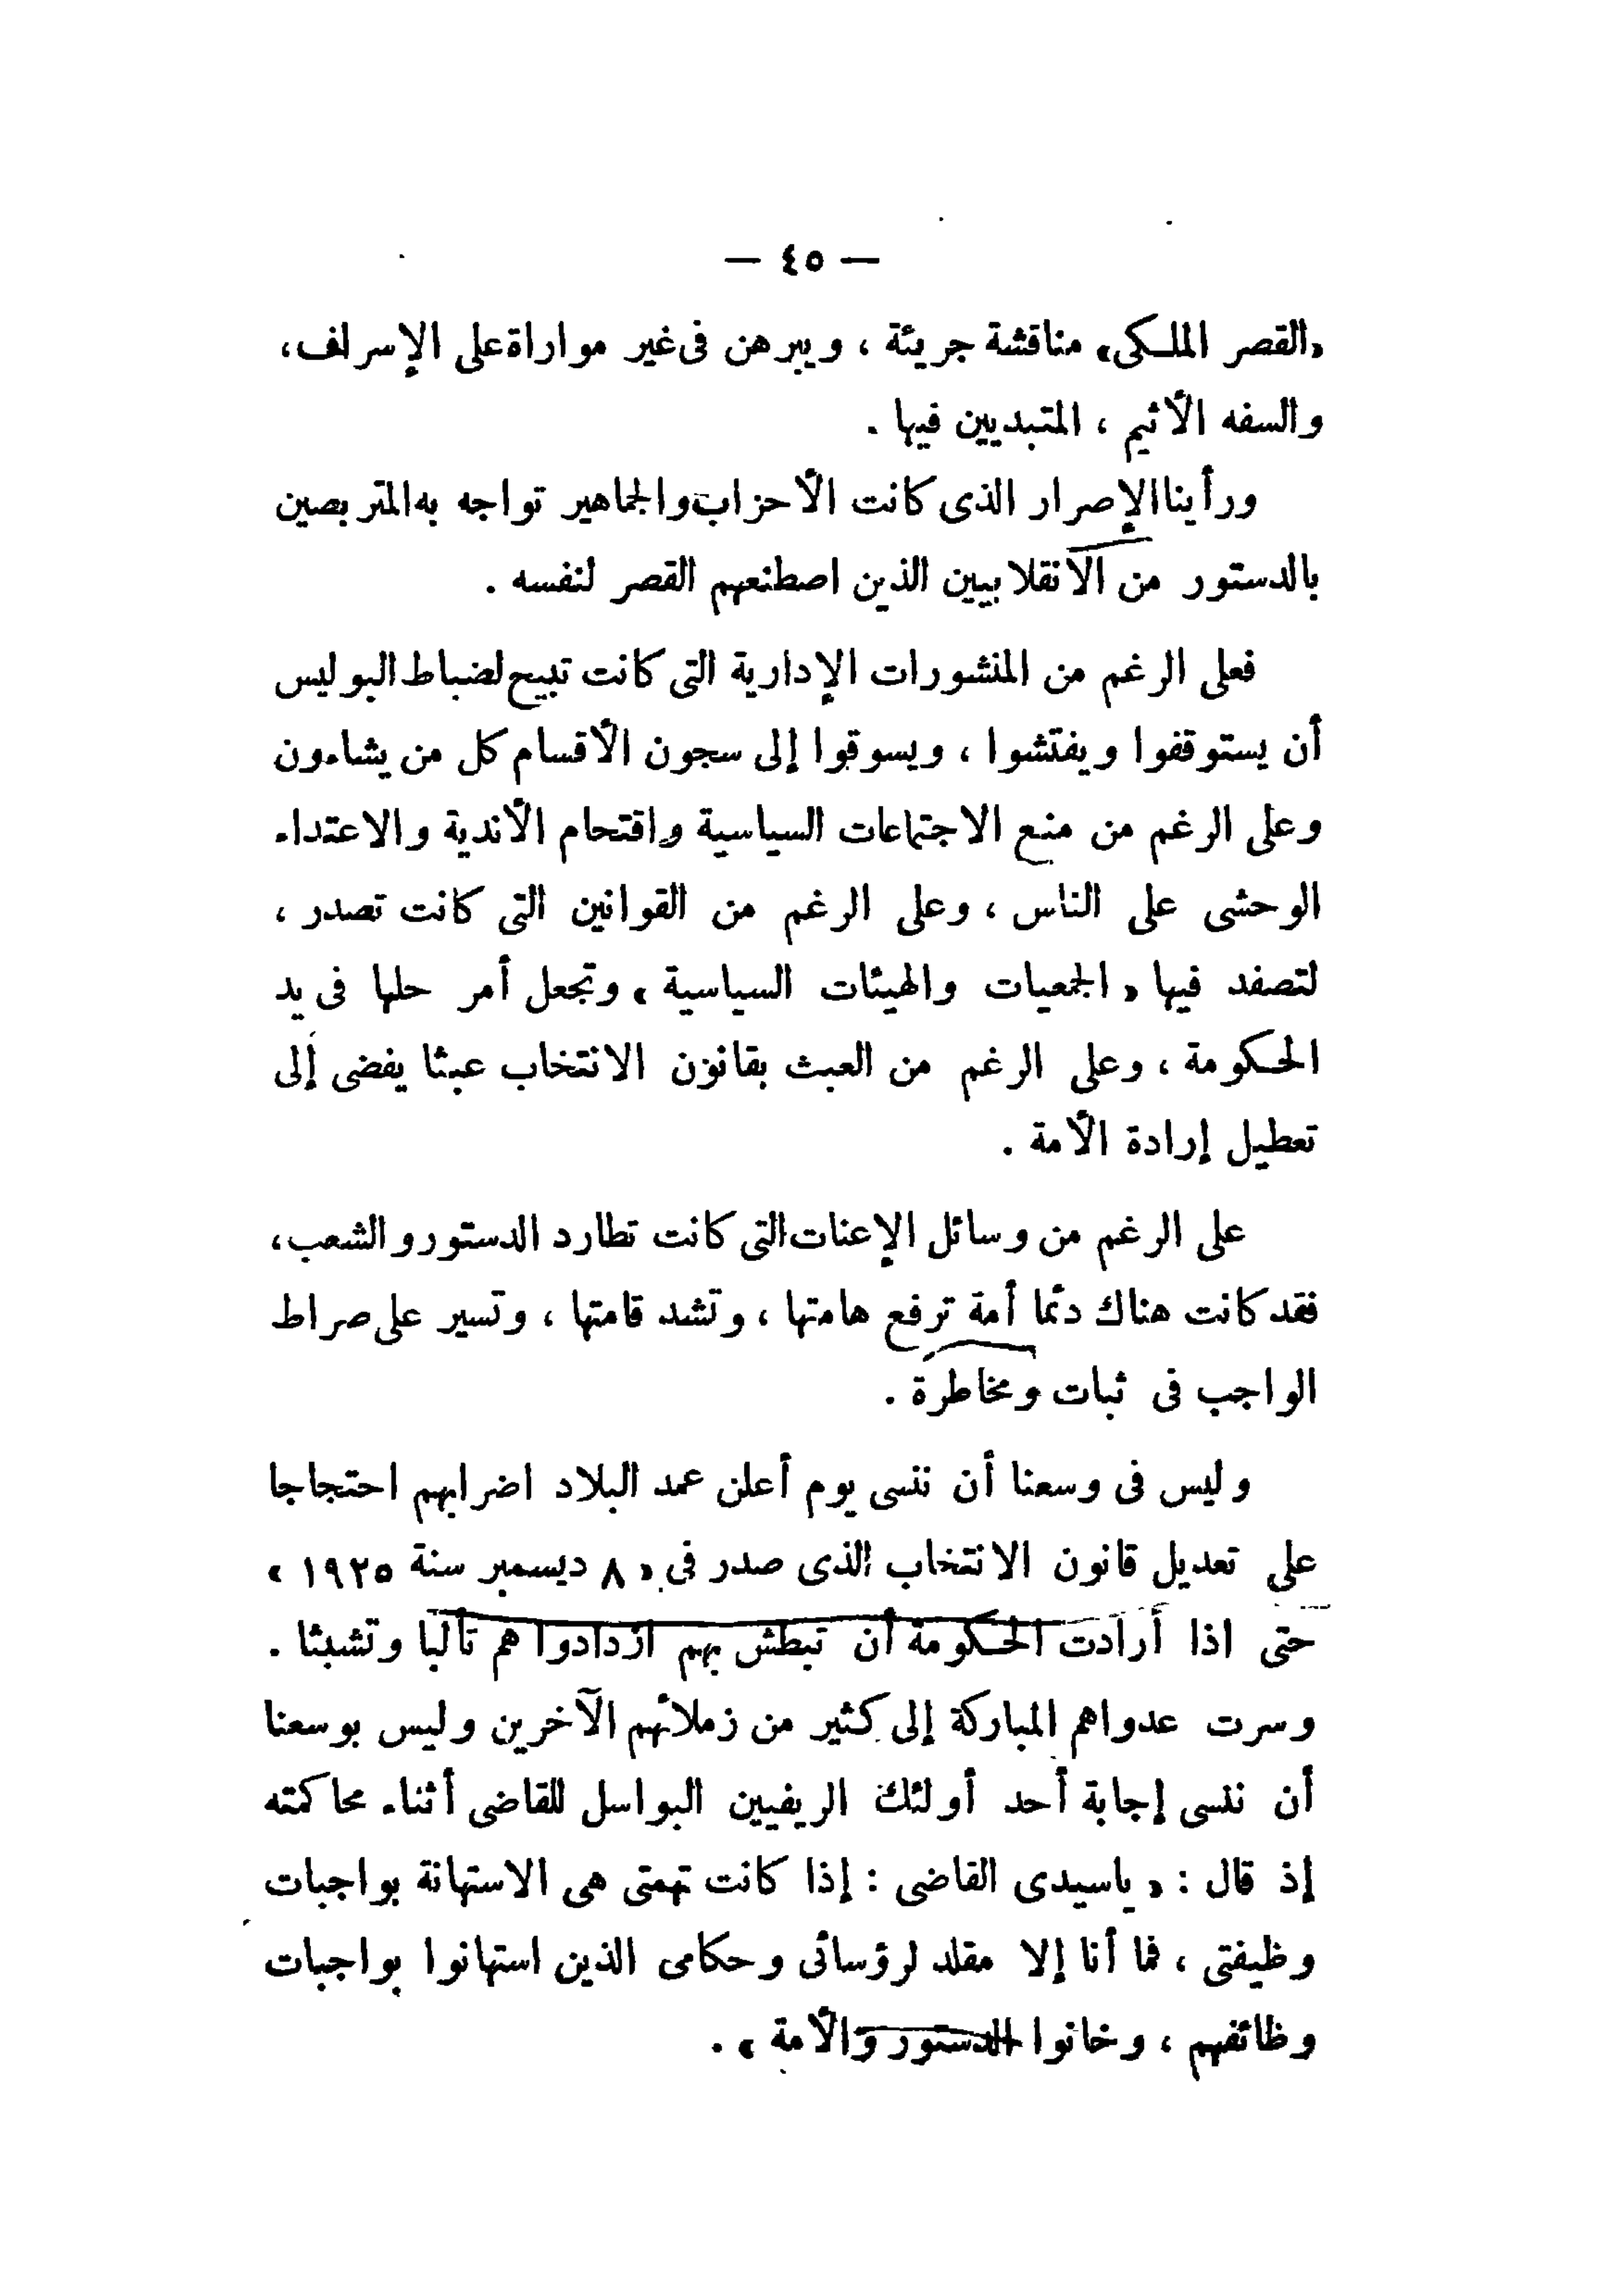 — ٤٥ —
«القصر الملكى» مناقشة جريئة ، ويبرهن فى غير مواراة على الإسراف،
والسفه الأثيم ، المتبديين فيها .
ورأينا الإصرار الذى كانت الأحزاب والجماهير تواجه به المتربصين
بالدستور من الانقلابيين الذين اصطنعهم القصر لنفسه .
فعلى الرغم من المنشورات الإدارية التى كانت تبيح لضباط البوليس
أن يستوقفوا ويفتشوا ، ويسوقوا إلى سجون الأقسام كل من يشاءون
وعلى الرغم من منع الاجتماعات السياسية واقتحام الأندية والاعتداء
الوحشى على الناس ، وعلى الرغم من القوانين التى كانت تصدر ،
لتصفد فيها « الجمعيات والهيئات السياسية » وتجعل أمر حلها فى يد
الحكومة ، وعلى الرغم من العبث بقانون الانتخاب عبثا يفضى إلى
تعطيل إرادة الأمة .
على الرغم من وسائل الإعنات التى كانت تطارد الدستور والشعب،
فقد كانت هناك دئما أمة ترفع هامتها ، وتشد قامتها ، وتسير على صراط
الواجب فى ثبات ومخاطرة .
وليس فى وسعنا أن ننسى يوم أعلن عمد البلاد اضرابهم احتجاجا
على تعديل قانون الانتخاب الذى صدر فى « ٨ ديسمبر سنة ١٩٢٥ »
حتى اذا أرادت الحكومة أن تبطش بهم ازدادوا هم تألبا وتشبثا .
وسرت عدواهم المباركة إلى كثير من زملائهم الآخرين وليس بوسعنا
أن ننسى إجابة أحد أولئك الريفيين البواسل للقاضى أثناء محاكمته
إذ قال : « ياسيدى القاضى : إذا كانت تهمتى هى الاستهانة بواجبات
وظيفتى ، فما أنا إلا مقلد لرؤسائى وحكامى الذين استهانوا بواجبات
وظائفهم ، وخانوا الدستور والأمة » .